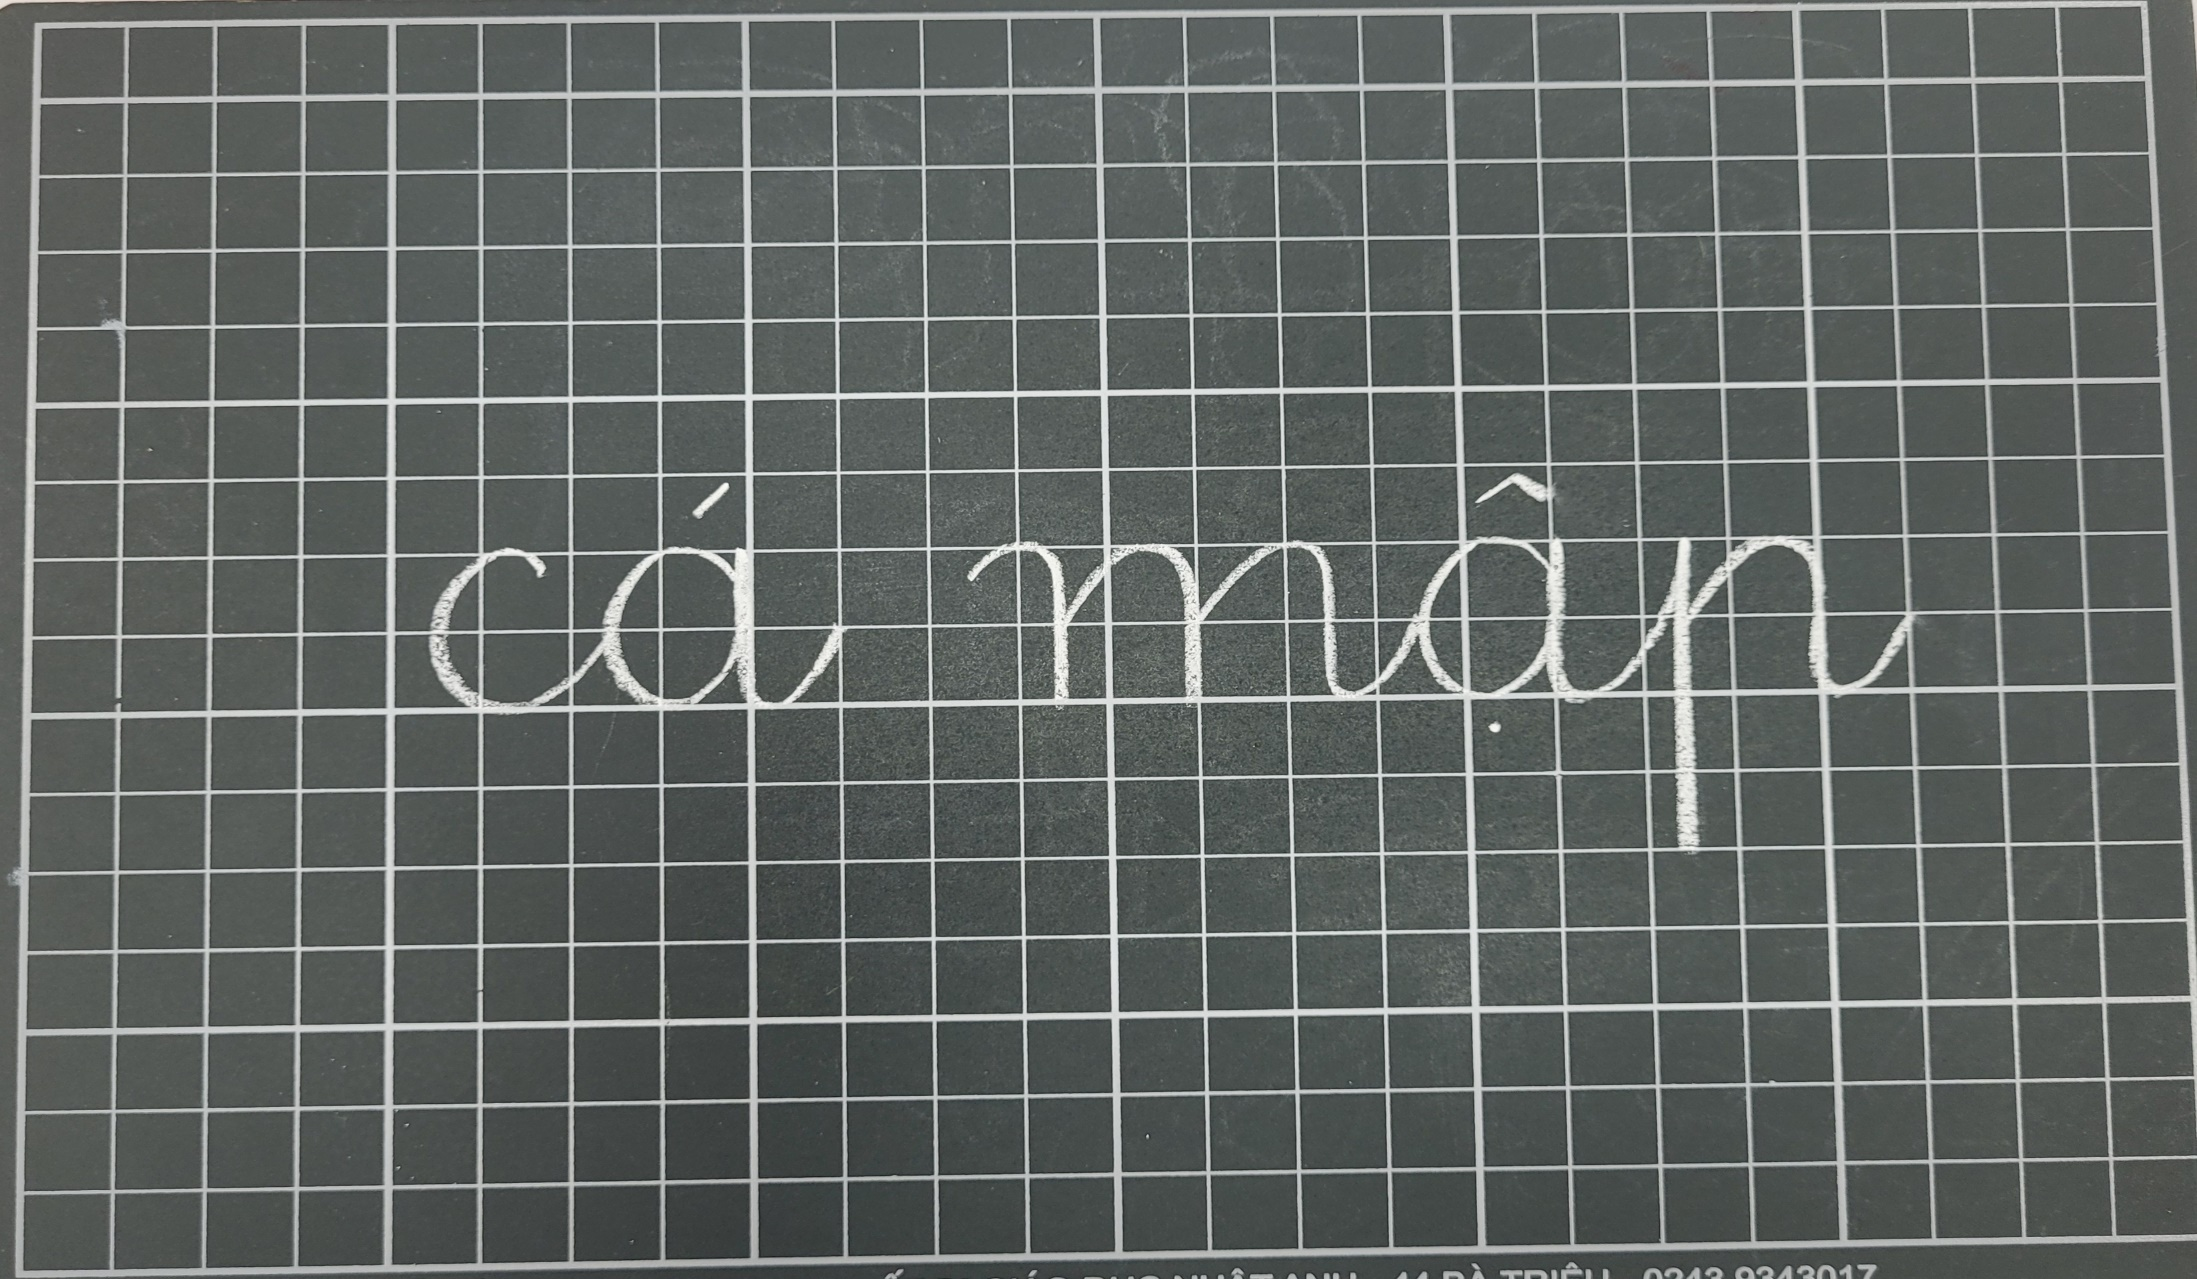 cá mập
GIÁO DỤC NHẬT ANH - 44 BÀ TRIỆU - 0243.9343017